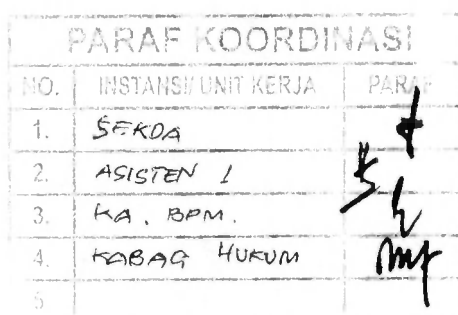 PARAF KOORDINASI
NO. INSTANSI/ UNIT KERJA PARAF
1. SEKDA
2. ASISTEN 1
3. KA. BPM.
4. KABAG HUKUM
5